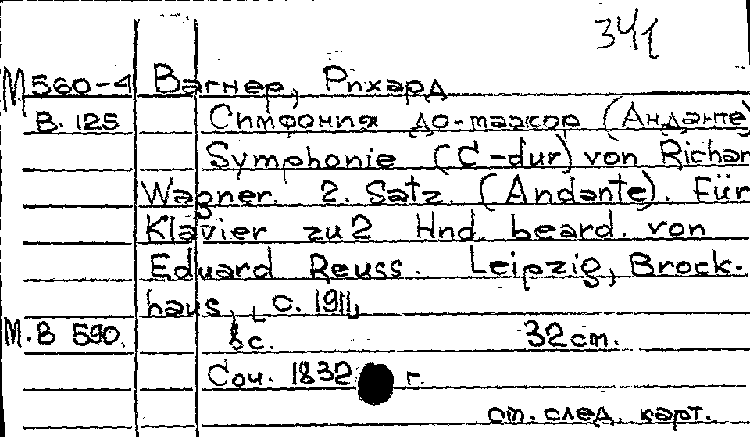 34/1
М 560-4 Вагнер, Рихард
В. 125 Симфония до-мажор (Анданте)
Symphonie (C-dur) von Richar
Wagner. 2. Satz. (Andante). Für
Klavier zu 2 Hnd. beard. von
Eduard Reuss. Leipzig, Brock-
haus, [c. 1911]
М. В 590. 8 с. 32 cm.
Соч. 1832 г.
см. след. карт.